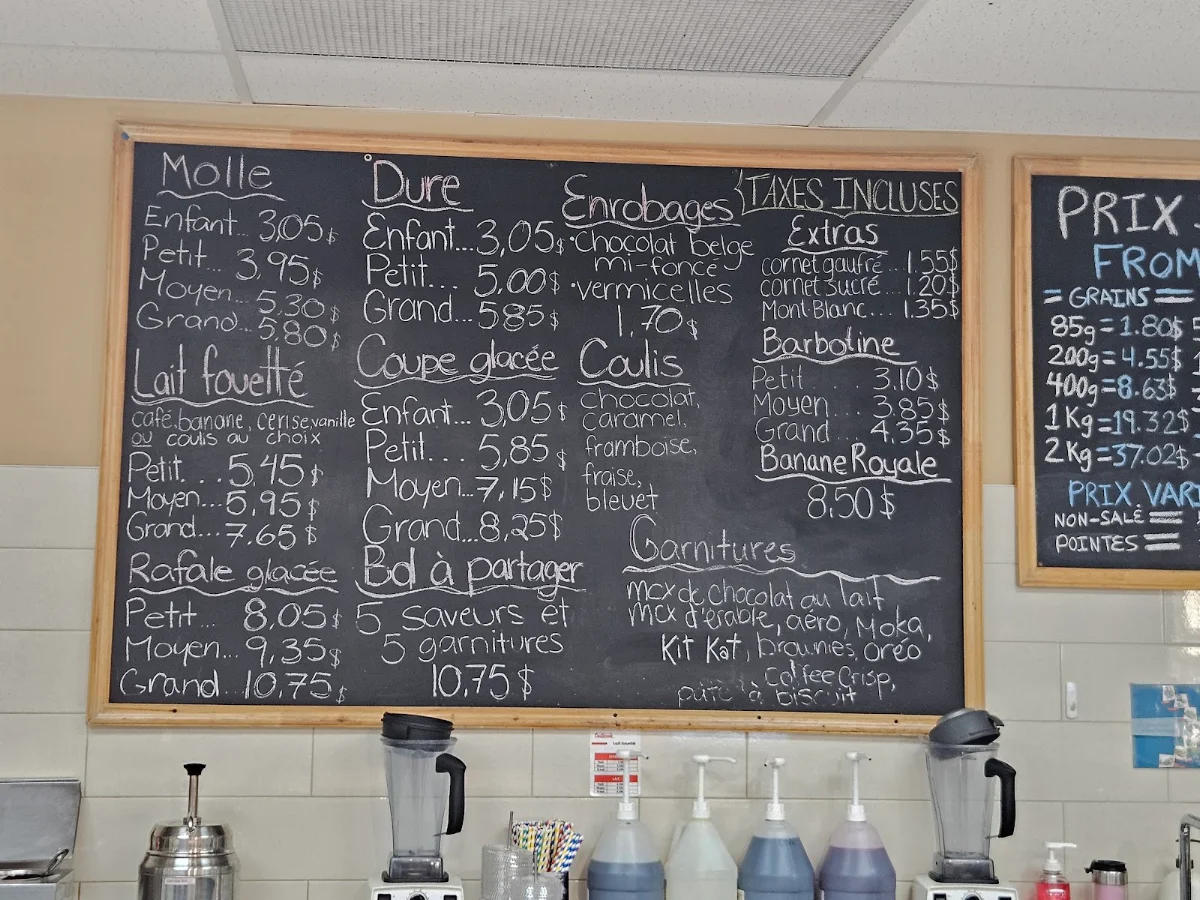 Molle
Enfant... 3,05$
Petit... 3,95$
Moyen... 5,30$
Grand... 5,80$
Lait fouetté
café, banane, cerise, vanille
ou coulis au choix
Petit... 5,45$
Moyen... 5,95$
Grand... 7,65$
Rafale glacée
Petit... 8,05$
Moyen... 9,35$
Grand... 10,75$
Dure
Enfant... 3,05$
Petit... 5,00$
Grand... 5,85$
Coupe glacée
Enfant... 3,05$
Petit... 5,85$
Moyen... 7,15$
Grand... 8,25$
Bol à partager
5 saveurs et
5 garnitures
10,75$
Enrobages
•chocolat belge
mi-foncé
•vermicelles
1,70$
Coulis
chocolat,
caramel,
framboise,
fraise,
bleuet
TAXES INCLUSES
Extras
cornet gaufré... 1.55$
cornet sucré... 1.20$
Mont-Blanc... 1.35$
Barbotine
Petit..... 3.10$
Moyen... 3.85$
Grand... 4.35$
Banane Royale
8,50$
Garnitures
mcx de chocolat au lait
mcx d'érable, aéro, Moka,
Kit Kat, brownies, oréo
Coffee Crisp,
pâte à biscuit
PRIX
FROM
= GRAINS =
85g = 1.80$
200g = 4.55$
400g = 8.63$
1 Kg = 19.32$
2 Kg = 37.02$
PRIX VARI
NON-SALÉ =
POINTES =